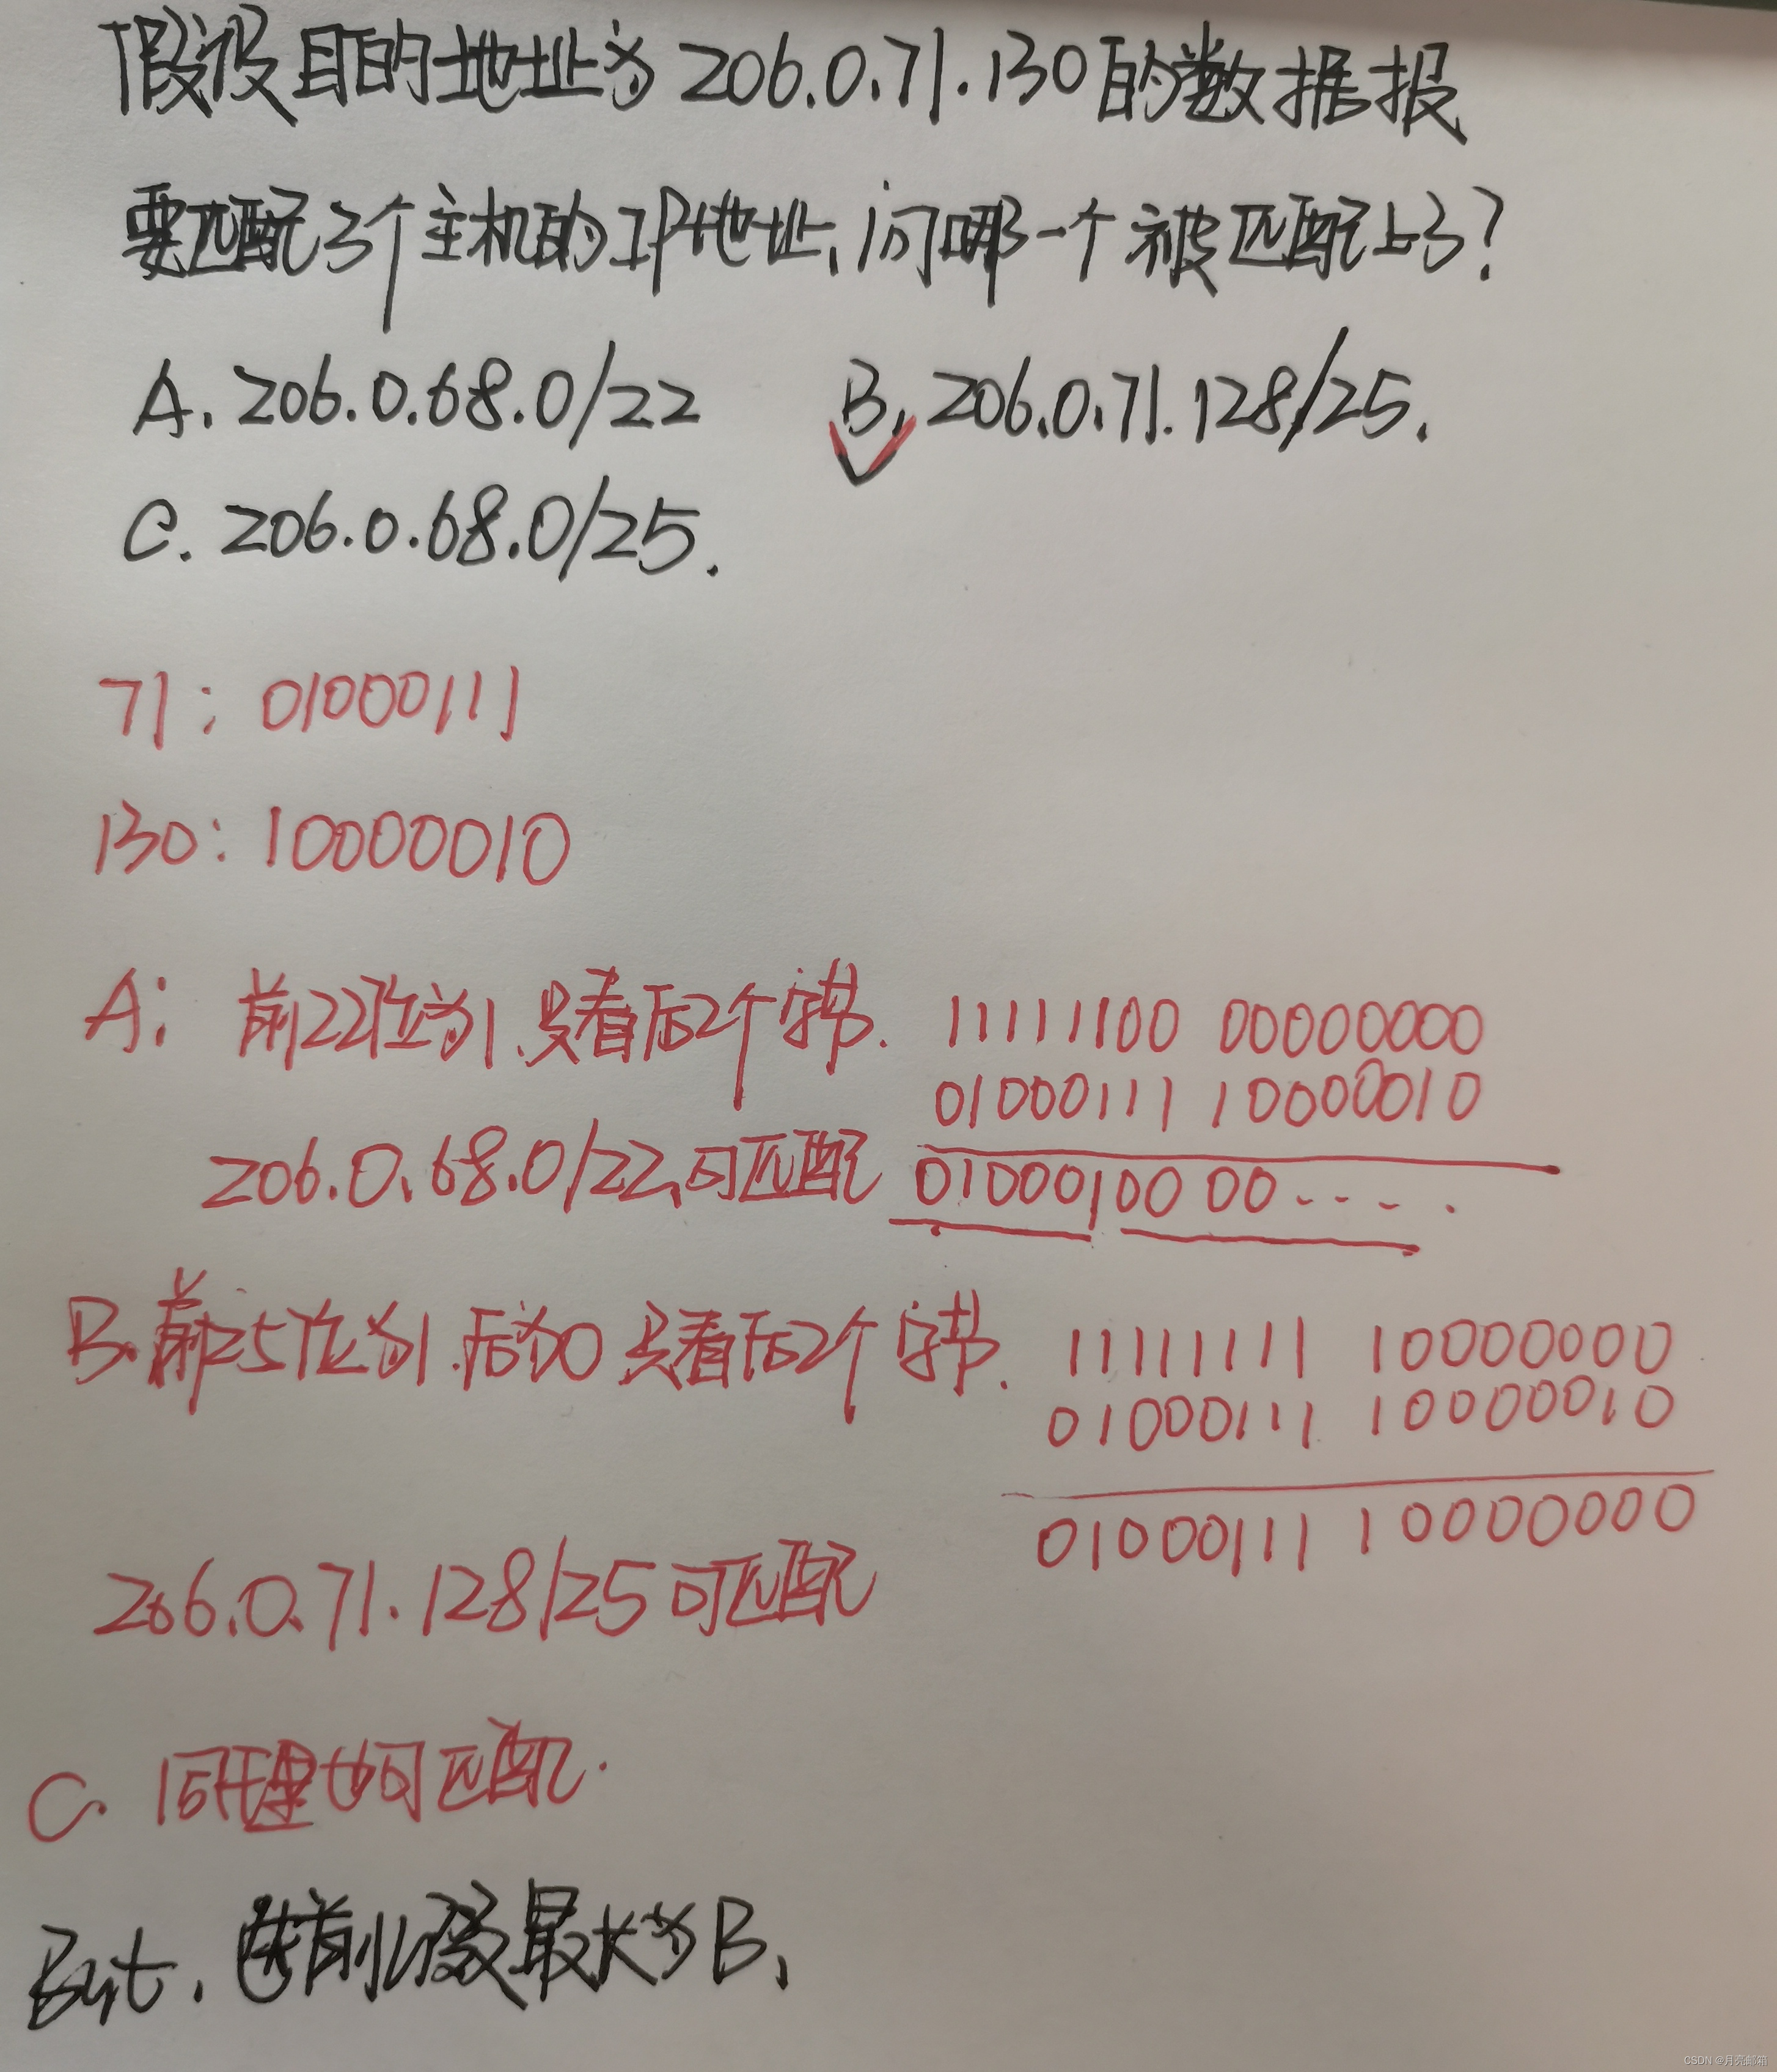 假设目的地址为206.0.71.130的数据报
要匹配3个主机的IP地址,问哪一个被匹配上了?
A. 206.0.68.0/22 B. 206.0.71.128/25.
C. 206.0.68.0/25.
71: 01000111
130: 10000010
A: 前22位为1,只看后2个字节. 11111100 00000000
01000111 10000010
206.0.68.0/22,可匹配 01000100 00....
B. 前25位为1.后为0 只看后2个字节. 11111111 10000000
01000111 10000010
01000111 10000000
206.0.71.128/25可匹配
C. 同理也可匹配.
But. 前缀最长为B.
CSDN @月亮邮箱